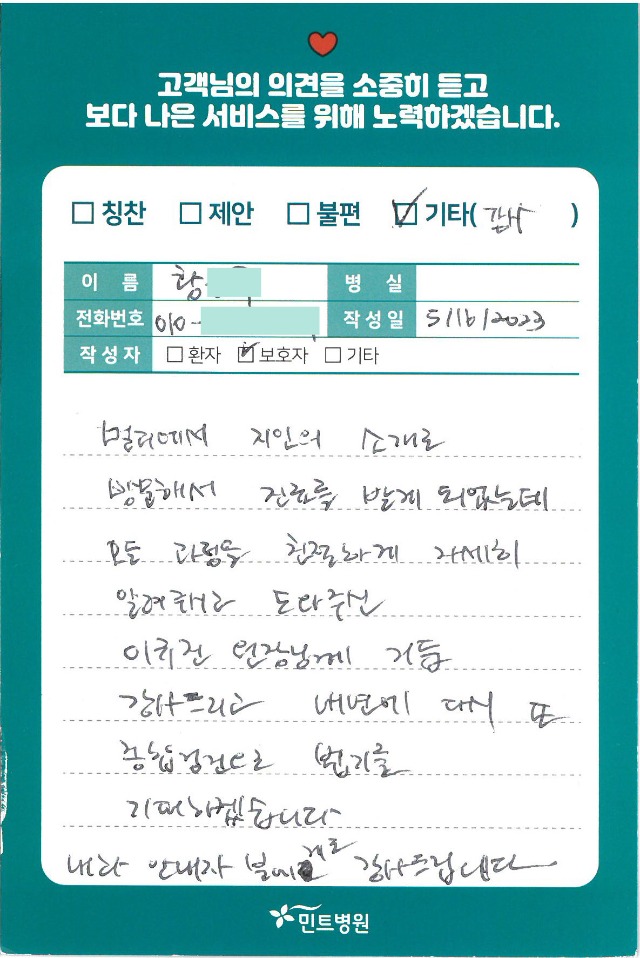 고객님의 의견을 소중히 듣고
보다 나은 서비스를 위해 노력하겠습니다.
□ 칭찬 □ 제안 □ 불편 ☑ 기타( 감사 )
이 름 황 병 실
전화번호 010- 작성일 5/16/2023
작성자 □ 환자 ☑ 보호자 □ 기타
멀리에서 지인의 소개로
방문해서 진료를 받게 되었는데
모든 과정을 친절하게 자세히
알려주시고 도와주신
원장님께 거듭
감사드리고 내년에 다시 또
종합검진으로 뵙기를
기대하겠습니다
안내자 감사드립니다
민트병원